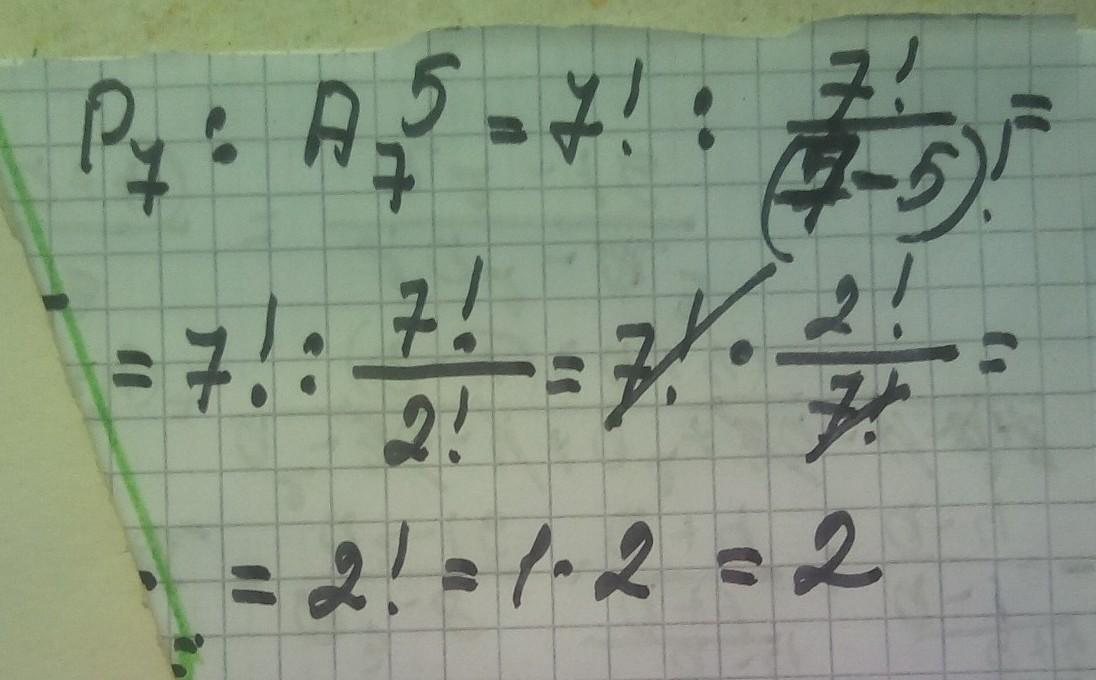 P₇ : A₇⁵ = 7! : 7!/(7-5)! =
= 7! : 7!/2! = 7! · 2!/7! =
= 2! = 1·2 = 2